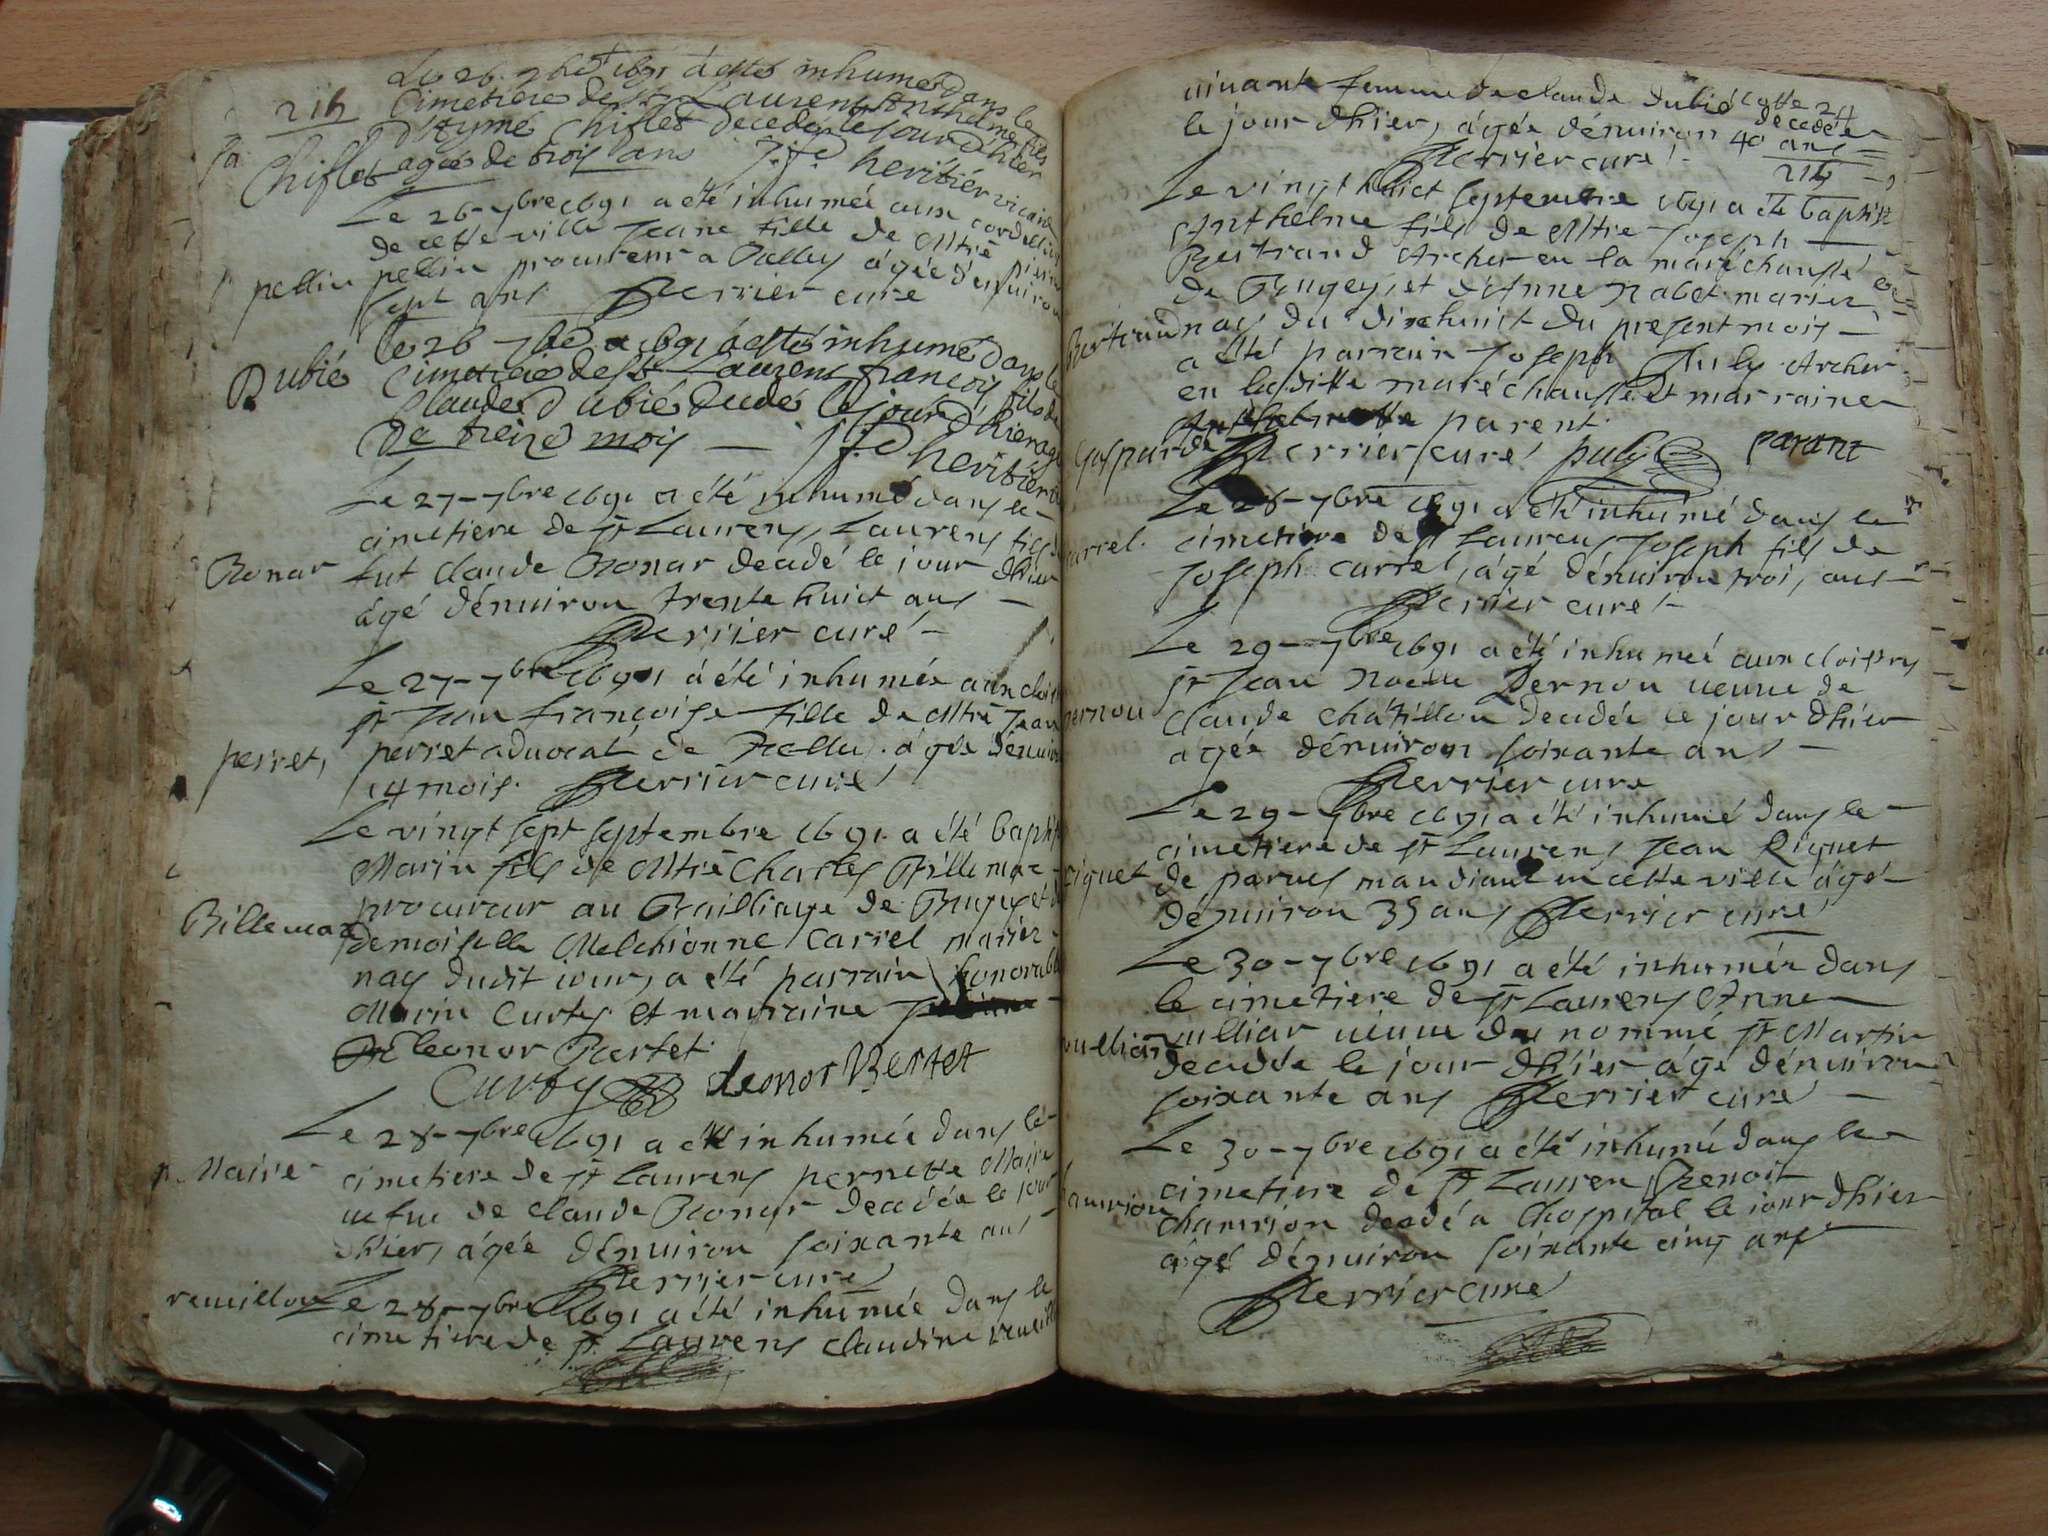 214
Le 26 7bre 1691 a esté inhumé dans le
Cimetiere de St Laurent Anthelme fils
d'Aymé Chiflet decedé le jour d'hier
Chiflet
agée de trois ans J. F. heritier vicaire
Le 26 7bre 1691 a été inhumée aux cordeliers
de cette ville Jeane fille de Mtre pierre
pellin
pellin procureur a Belley agée d'enuiron
sept ans Perrier curé
Dubié
le 26 7bre 1691 a esté inhumé dans le
Cimetiere de St Laurens françois fils de
Claude Dubié decedé le jour d'hier agé
de treize mois — J. F. heritier
Le 27 7bre 1691 a été inhumé dans le
cimetiere de St Laurens, Laurens fils de
Bonar
fut claude Bonar decedé le jour dhier
agé dénuiron trente huict ans —
Perrier curé
Le 27 7bre 1691 a été inhumée aux cloistres
St Jean françoise fille de Mtre Jean
perret
perret aduocat de Belley agée dénuiron
14 mois. Perrier curé
Le vingt sept septembre 1691 a été baptisé
Marin fils de Mtre Charles Billemaz
procureur au Bailliage de Bugey et de
Billemaz
demoiselle Melchionne Carrel mariez
nay dudit iour, a été parrain honorable
Marin Curty et marraine
Eleonor Bertet
Curty leonor Bertet
Le 28 7bre 1691 a été inhumée dans le
p. Maire
cimetiere de St Laurens pernette Maire
uefue de claude Bonar decedée le jour
dhier, agée dénuiron soixante ans
Perrier curé
reuillou
Le 28 7bre 1691 a été inhumée dans le
cimetiere de St Laurens claudine
uiuante femme de claude dubié cette
24
le jour dhier, agée dénuiron 40 ans
decedée
Perrier curé
214
Le vingt huict septembre 1691 a été baptisé
Anthelme fils de Mtre Joseph
Bertrand Archer en la maréchaussé
de Bugey, et d'Anne Rabet mariez
Bertrand
nay du dixhuict du present mois —
a été parrain Joseph July Archer
en laditte maréchaussé et marraine
parent
Gasparde
Perrier curé July parant
Le 28 7bre 1691 a été inhumé dans le
carrel
cimetiere de St Laurens Joseph fils de
Joseph carrel, agé dénuiron trois ans
Perrier curé
Le 29 7bre 1691 a été inhumée aux cloistres
St Jean Noelle Pernou ueuue de
pernou
claude châtillon decedée le jour dhier
agée dénuiron soixante ans —
Perrier curé
Le 29 7bre 1691 a été inhumé dans le
cimetiere de St Laurens Jean Riquet
riquet
de parues mandiant en cette ville agé
dénuiron 35 ans Perrier curé
Le 30 7bre 1691 a été inhumée dans
le cimetiere de St Laurens Anne
vulliar
vulliar ueuue du nommé St Martin
decedée le jour dhier agé dénuiron
soixante ans Perrier curé
Le 30 7bre 1691 a été inhumé dans le
cimetiere de St Laurens Benoit
chamrion
chamrion decedé a lhospital le iour dhier
agé dénuiron soixante cinq ans
Perrier curé